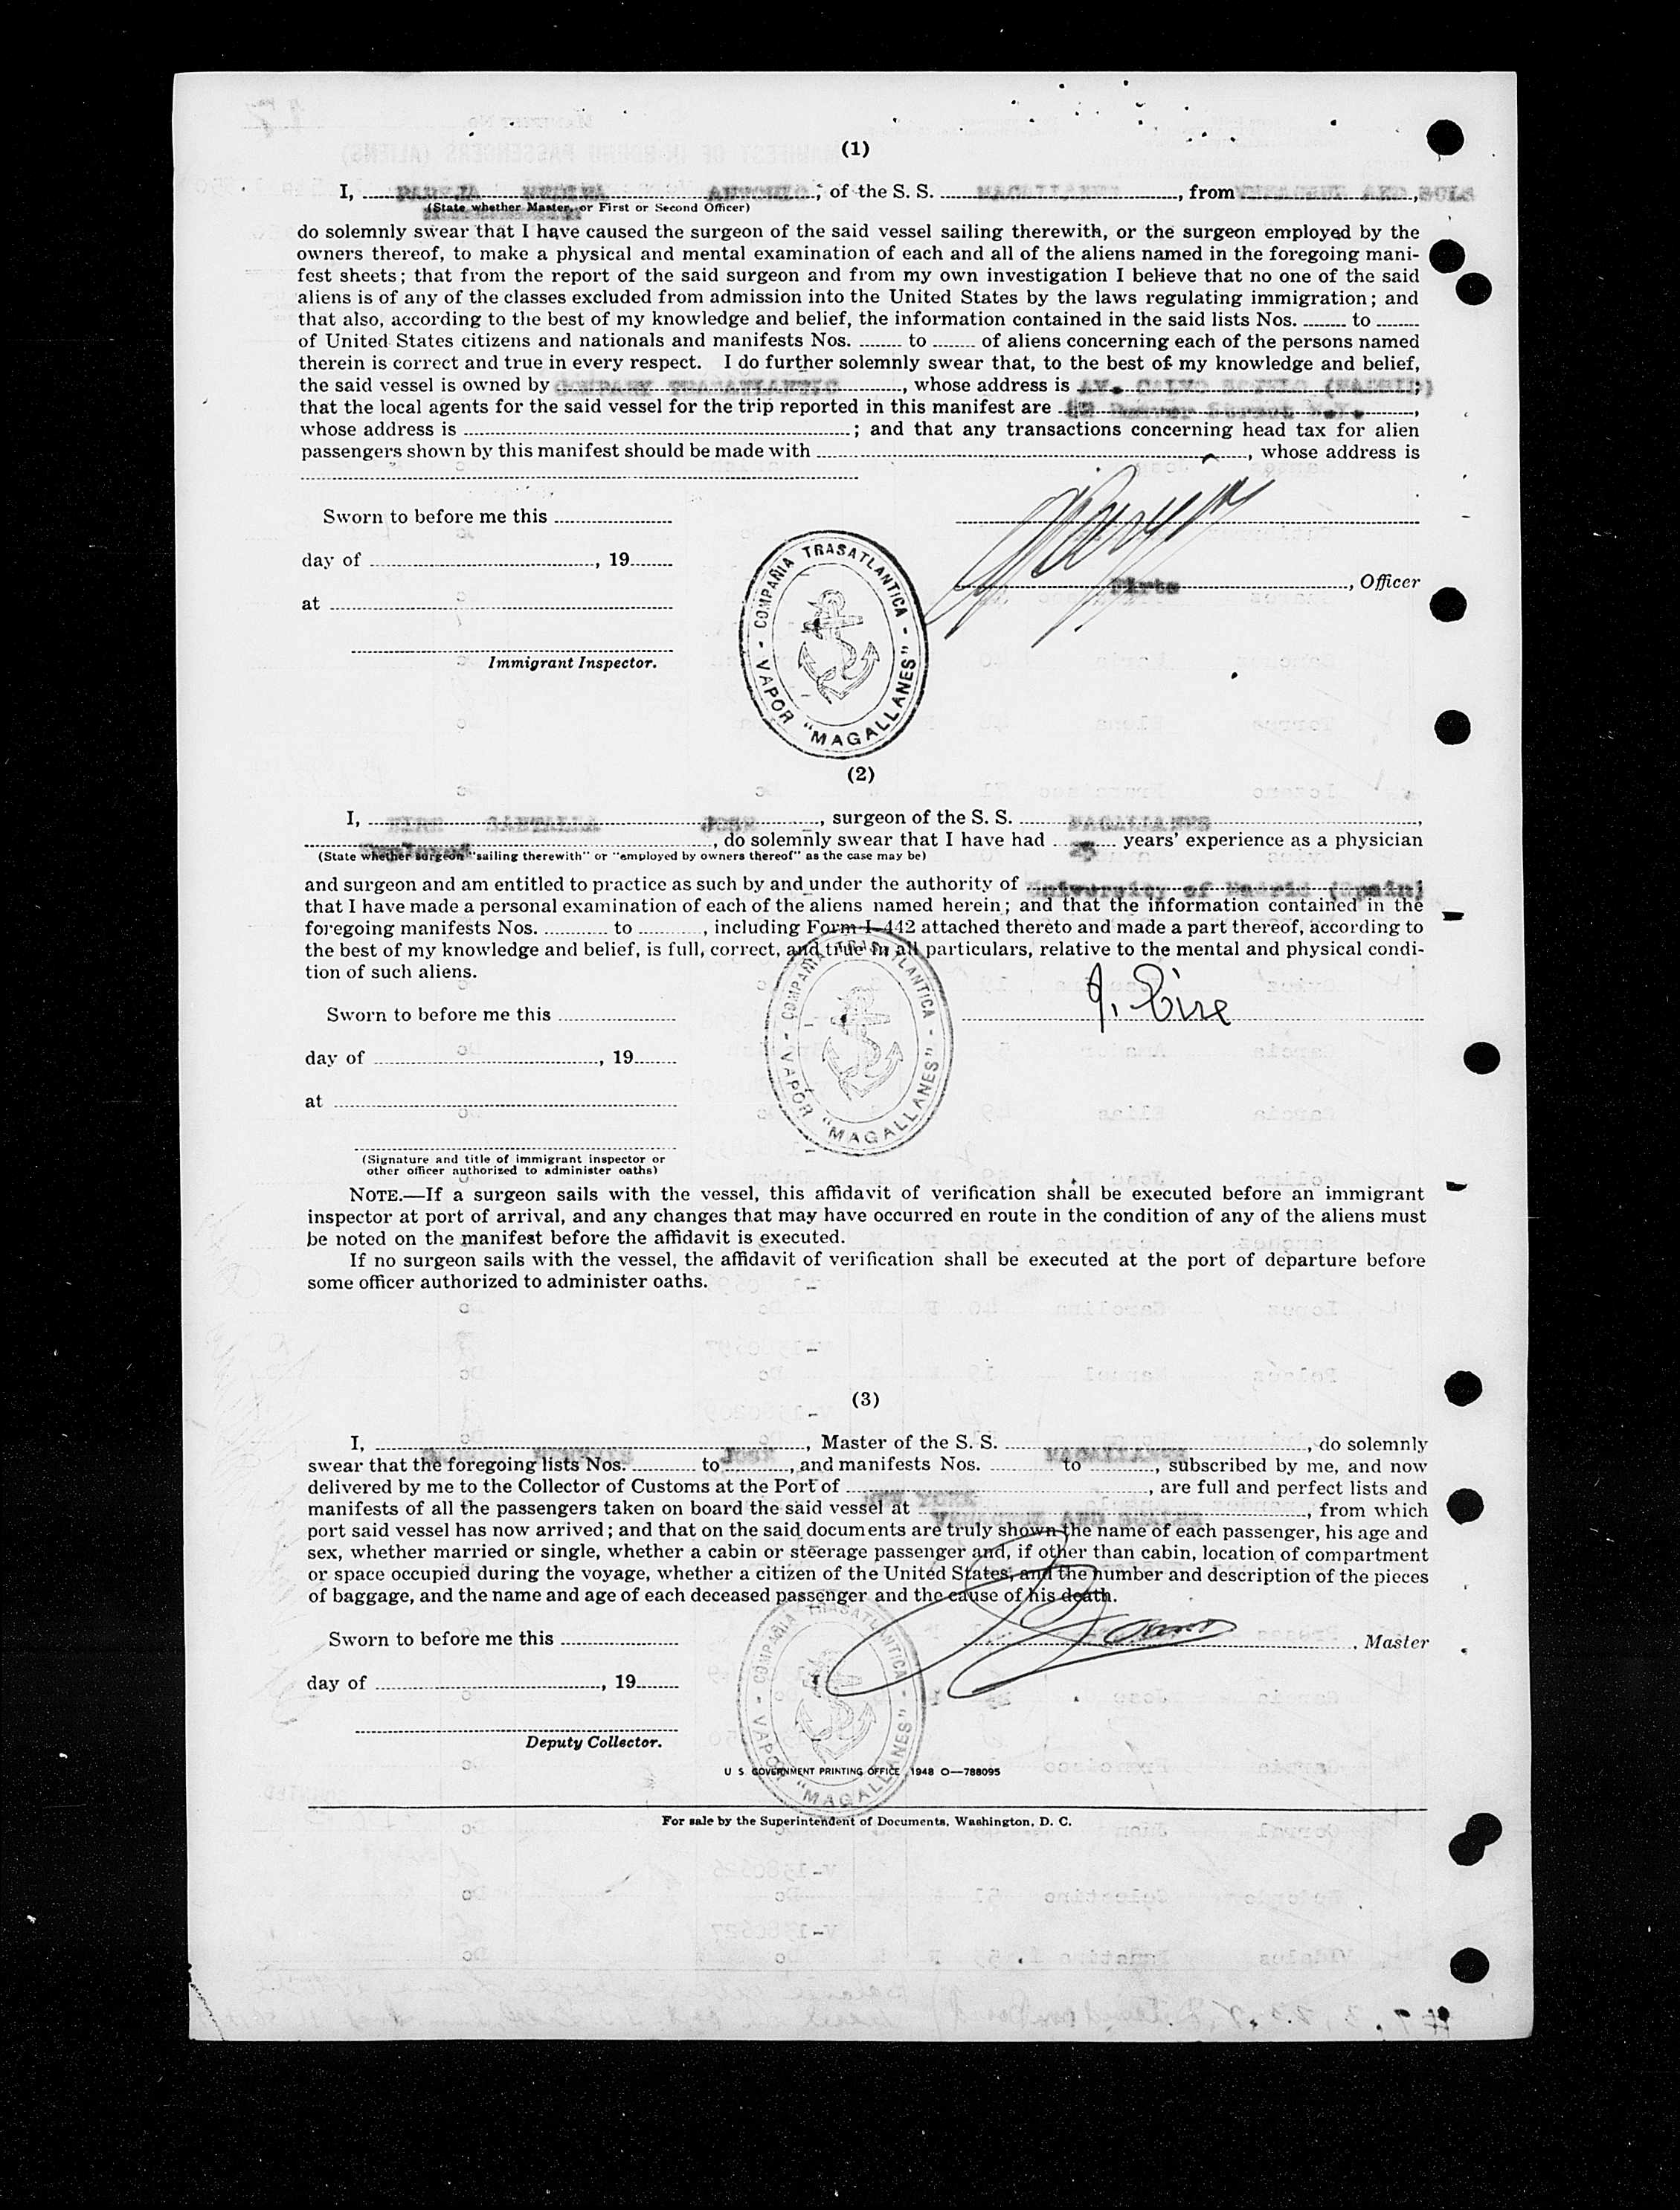 (1)
I, ANTONIO, of the S. S. MAGALLANES, from VERACRUZ AND
(State whether Master, or First or Second Officer)
do solemnly swear that I have caused the surgeon of the said vessel sailing therewith, or the surgeon employed by the
owners thereof, to make a physical and mental examination of each and all of the aliens named in the foregoing mani-
fest sheets; that from the report of the said surgeon and from my own investigation I believe that no one of the said
aliens is of any of the classes excluded from admission into the United States by the laws regulating immigration; and
that also, according to the best of my knowledge and belief, the information contained in the said lists Nos. ........ to ........
of United States citizens and nationals and manifests Nos. ........ to ........ of aliens concerning each of the persons named
therein is correct and true in every respect. I do further solemnly swear that, to the best of my knowledge and belief,
the said vessel is owned by COMPANY TRASATLANTIC, whose address is AV. CALVO SOTELO (MADRID);
that the local agents for the said vessel for the trip reported in this manifest are Street N.Y.,
whose address is ........; and that any transactions concerning head tax for alien
passengers shown by this manifest should be made with ........, whose address is
Sworn to before me this ........
day of ........, 19........
at ........
Immigrant Inspector.
, Officer
- COMPAÑIA TRASATLANTICA -
VAPOR "MAGALLANES"
(2)
I, JOSE, surgeon of the S. S. MAGALLANES,
Employed, do solemnly swear that I have had 25 years' experience as a physician
(State whether surgeon "sailing therewith" or "employed by owners thereof" as the case may be)
and surgeon and am entitled to practice as such by and under the authority of University of Madrid (Spain)
that I have made a personal examination of each of the aliens named herein; and that the information contained in the
foregoing manifests Nos. ........ to ........, including Form I-442 attached thereto and made a part thereof, according to
the best of my knowledge and belief, is full, correct, and true in all particulars, relative to the mental and physical condi-
tion of such aliens.
J. Eire
Sworn to before me this ........
day of ........, 19........
at ........
- COMPAÑIA TRASATLANTICA -
VAPOR "MAGALLANES"
(Signature and title of immigrant inspector or
other officer authorized to administer oaths)
NOTE.—If a surgeon sails with the vessel, this affidavit of verification shall be executed before an immigrant
inspector at port of arrival, and any changes that may have occurred en route in the condition of any of the aliens must
be noted on the manifest before the affidavit is executed.
If no surgeon sails with the vessel, the affidavit of verification shall be executed at the port of departure before
some officer authorized to administer oaths.
(3)
I, JOSE, Master of the S. S. MAGALLANES, do solemnly
swear that the foregoing lists Nos. ........ to ........, and manifests Nos. ........ to ........, subscribed by me, and now
delivered by me to the Collector of Customs at the Port of NEW YORK, are full and perfect lists and
manifests of all the passengers taken on board the said vessel at VERACRUZ AND, from which
port said vessel has now arrived; and that on the said documents are truly shown the name of each passenger, his age and
sex, whether married or single, whether a cabin or steerage passenger and, if other than cabin, location of compartment
or space occupied during the voyage, whether a citizen of the United States, and the number and description of the pieces
of baggage, and the name and age of each deceased passenger and the cause of his death.
Sworn to before me this ........
, Master
day of ........, 19........
Deputy Collector.
- COMPAÑIA TRASATLANTICA -
VAPOR "MAGALLANES"
U S GOVERNMENT PRINTING OFFICE 1948 O—788095
For sale by the Superintendent of Documents, Washington, D. C.